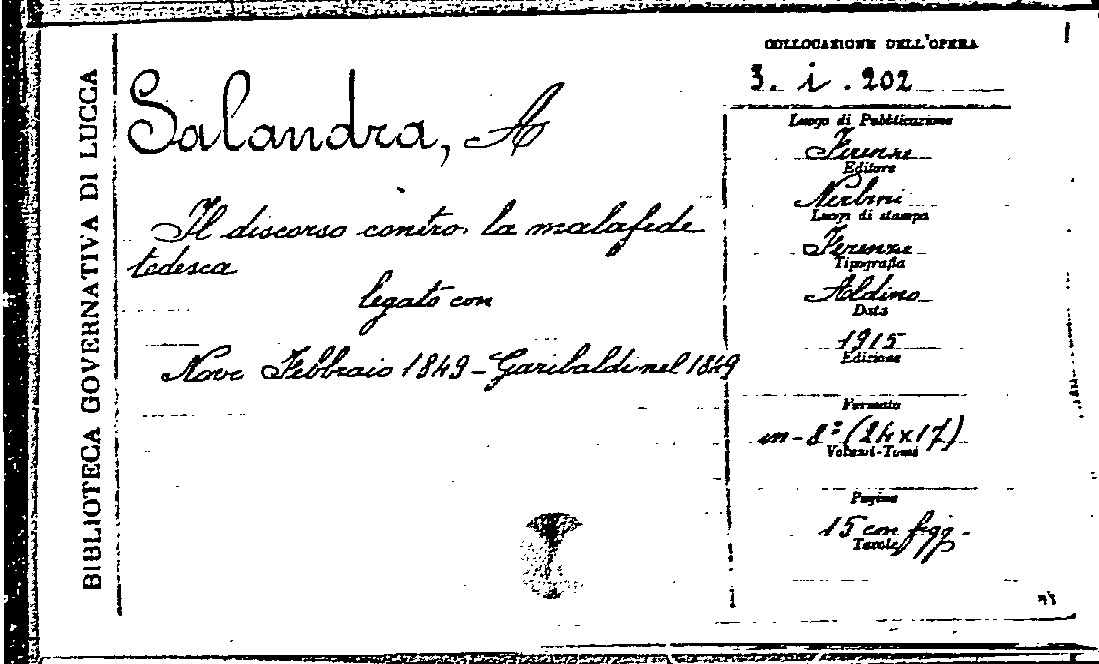 BIBLIOTECA GOVERNATIVA DI LUCCA
COLLOCAZIONE DELL'OPERA
3. i. 202
Salandra, A
Il discorso contro la malafede
tedesca
legato con
Nove Febbraio 1849 - Garibaldi nel 1849
Luogo di Pubblicazione
Firenze
Editore
Nerbini
Luogo di stampa
Firenze
Tipografia
Aldino
Data
1915
Edizione
Formato
in-8º (24x17)
Volumi-Tomi
Pagine
15 con figg.
Tavole